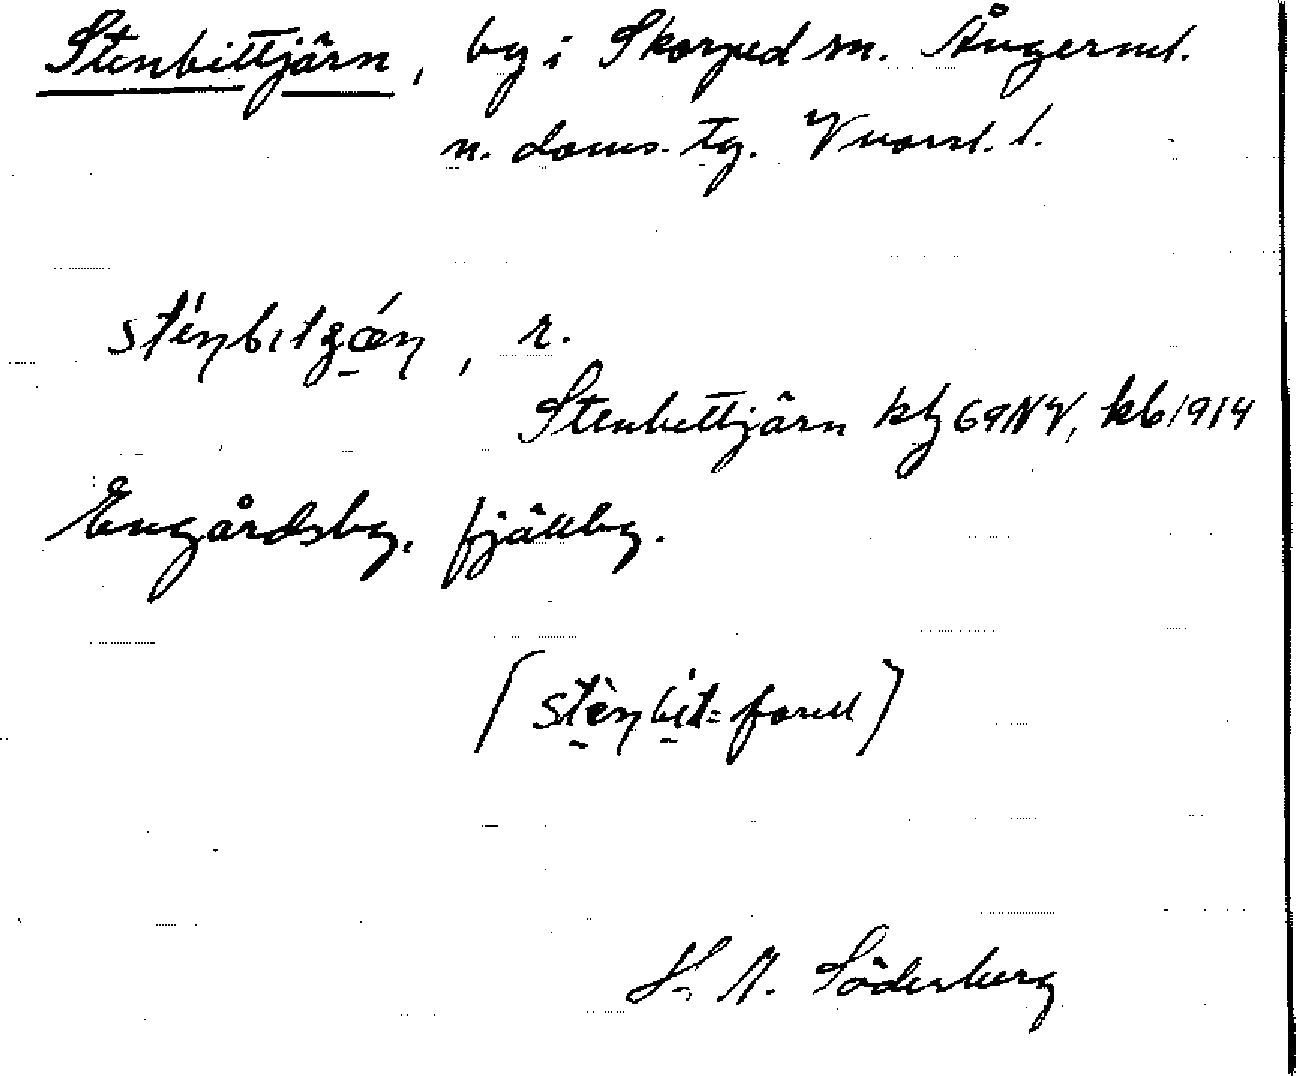 Stenbittjärn, by i Skorped sn. Ångerml.
n. doms. tg. Vnorrl. l.
sténybitʒæ̀n, r.
Stenbittjärn kbl 69NV, kb 1914
Engårdsby, fjällby.
(stènbít = forell)
K. A. Söderberg